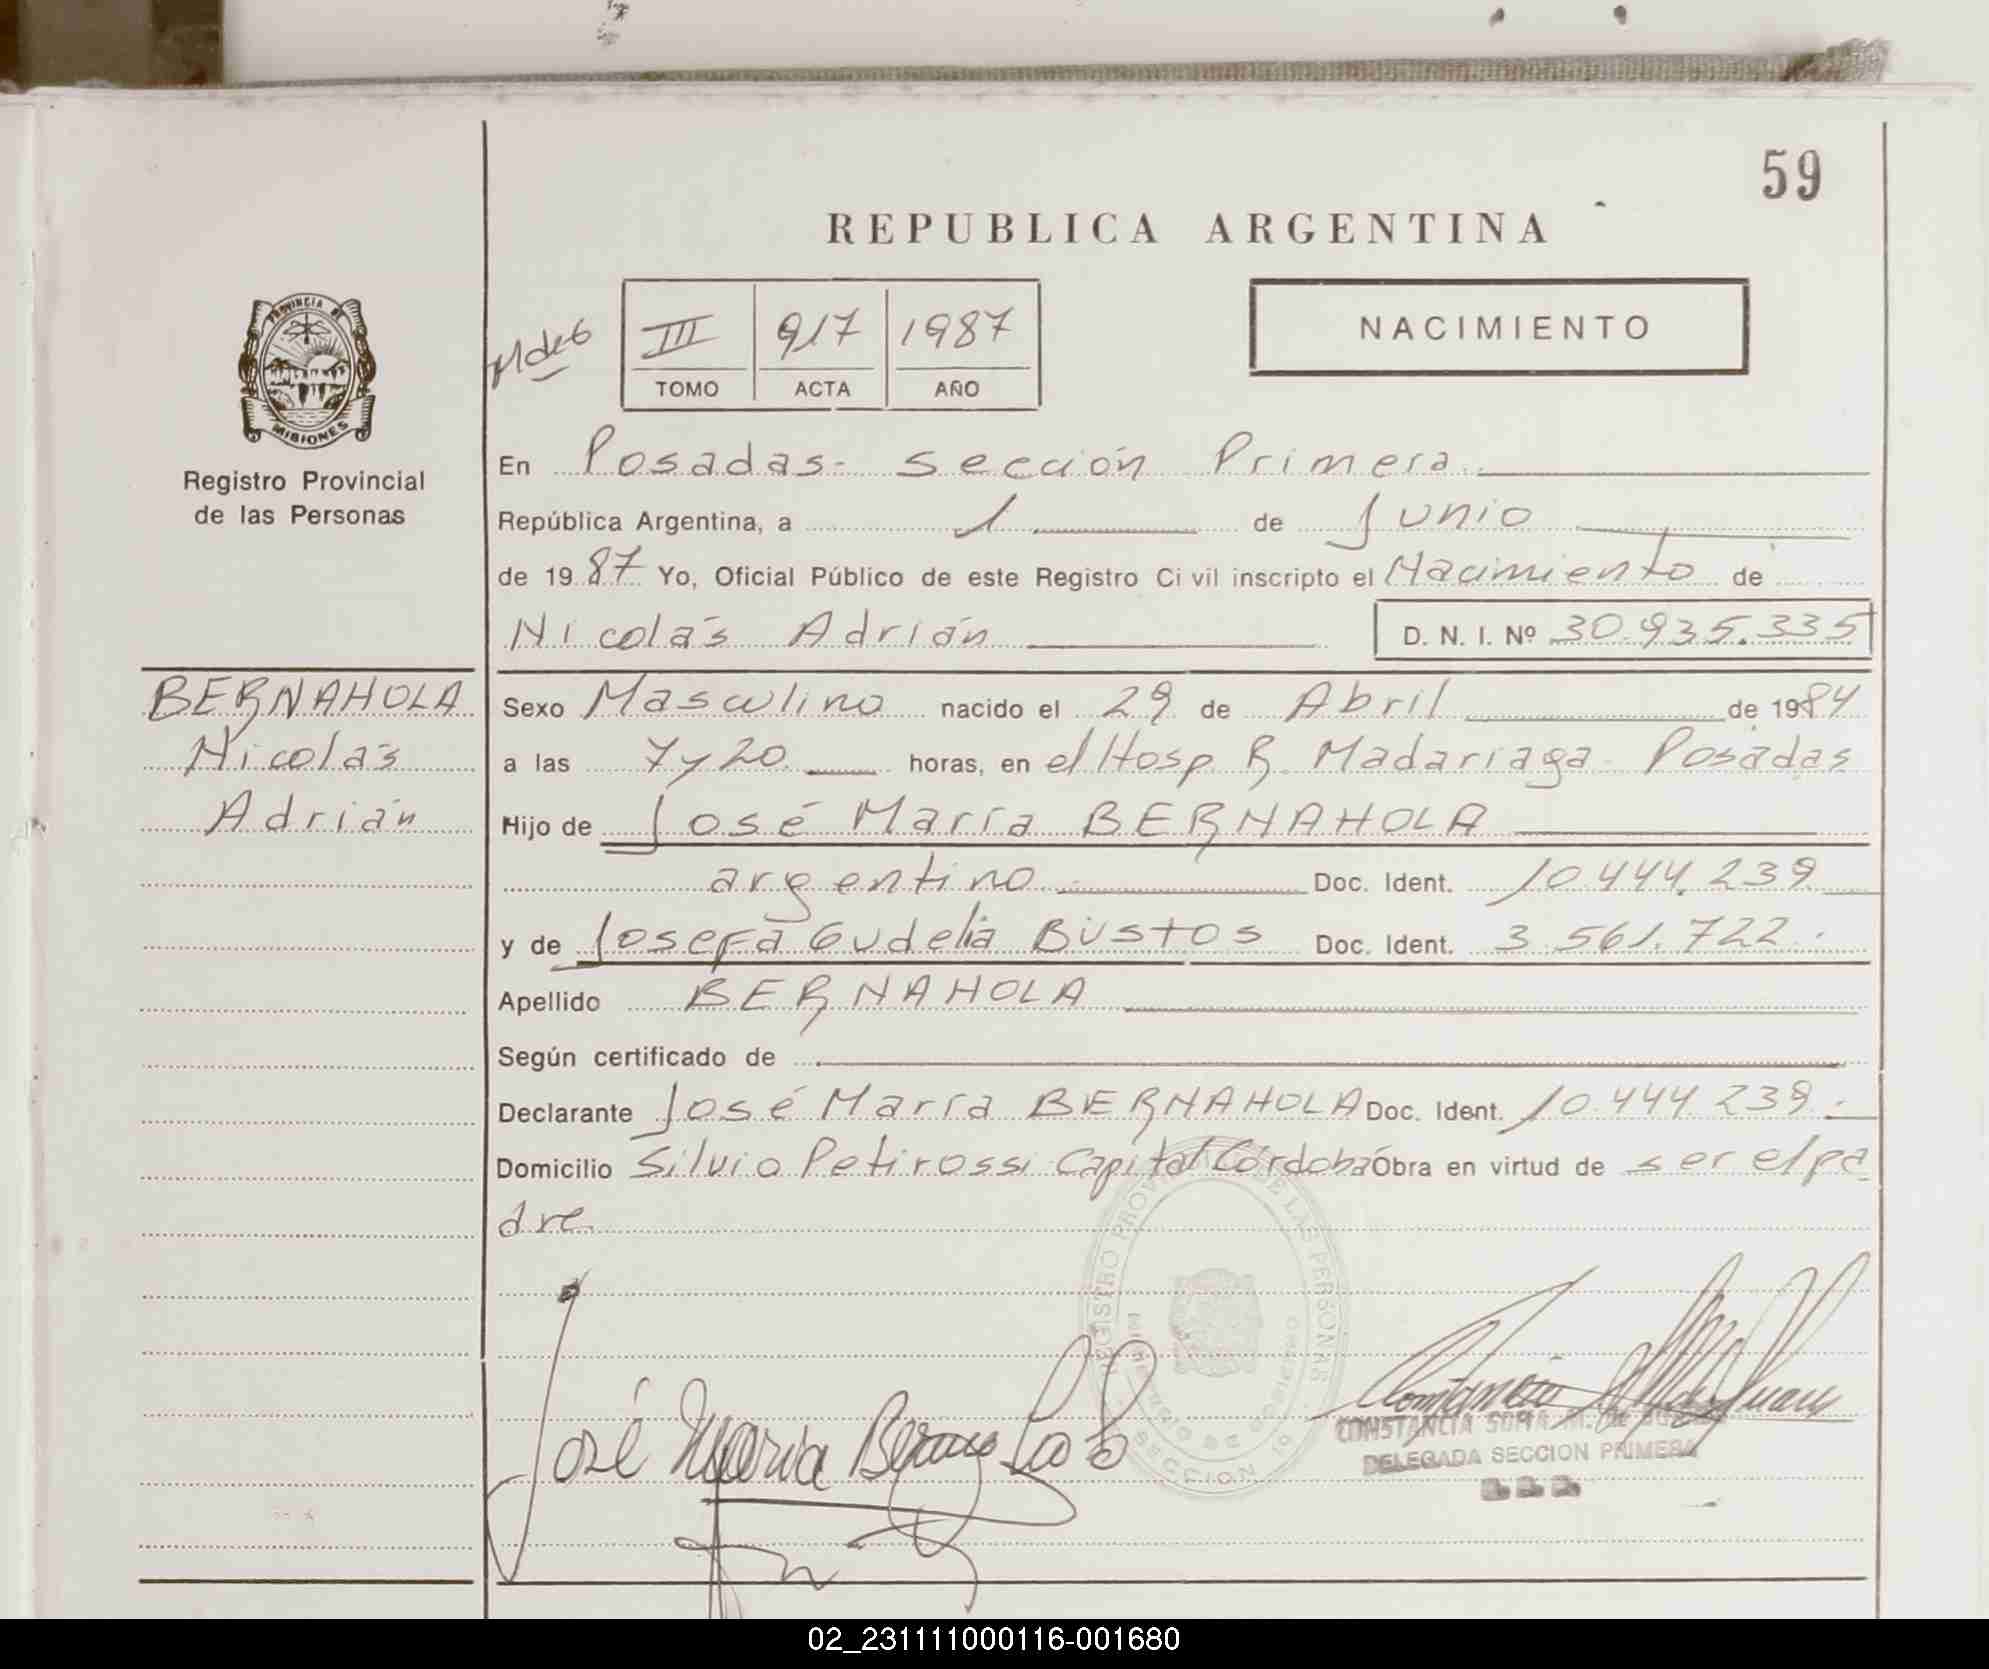 59
REPUBLICA ARGENTINA
III 917 1987
TOMO ACTA AÑO
NACIMIENTO
PROVINCIA DE
MISIONES
Registro Provincial
de las Personas
En Posadas- sección Primera
República Argentina, a 1 de Junio
de 1987 Yo, Oficial Público de este Registro Civil inscripto el Nacimiento de
Nicolás Adrián D. N. I. Nº 30.935.335
BERNAHOLA
Nicolás
Adrián
Sexo Masculino nacido el 29 de Abril de 1984
a las 7 y 20 horas, en el Hosp. R. Madariaga- Posadas
Hijo de José María BERNAHOLA
argentino Doc. Ident. 10.444.239
y de Josefa Gudelia Bustos Doc. Ident. 3.561.722.
Apellido BERNAHOLA
Según certificado de
Declarante José María BERNAHOLA Doc. Ident. 10.444.239.-
Domicilio Silvio Petirossi Capital Córdoba Obra en virtud de ser el pa
dre.
REGISTRO PROVINCIAL DE LAS PERSONAS
MINISTERIO DE GOBIERNO
SECCION 1º
José Maria
CONSTANCIA SOFIA M. de
DELEGADA SECCION PRIMERA
02_231111000116-001680